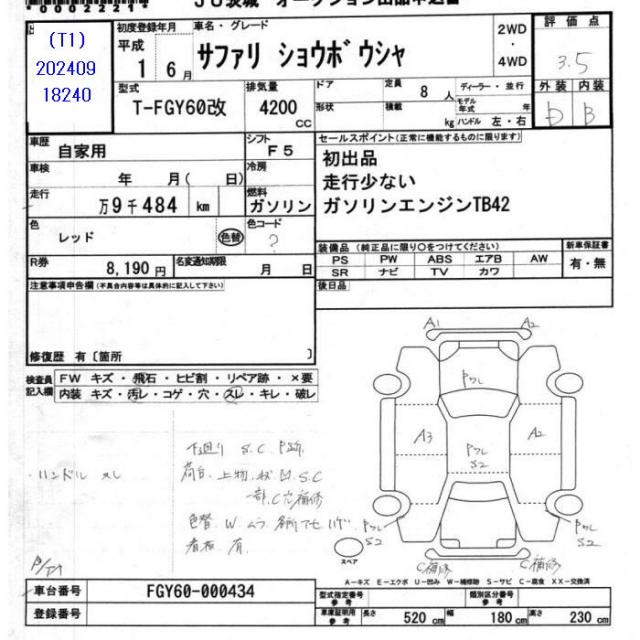 000222214
JU茨城 オークション出品申込書
(T1)
202409
18240
初度登録年月
平成
1 6月
車名・グレード
サファリ ショウボウシャ
2WD
・
4WD
評価点
3.5
外装 内装
b B
型式
T-FGY60改
排気量
4200
CC
ドア
形状
定員
8 人
積載
kg
ディーラー・並行
モデル年式 年
ハンドル 左・右
車歴
自家用
シフト
F5
車検
年 月( 日)
冷房
走行
万9千484 km
燃料
ガソリン
色
レッド
色替
色コード
?
セールスポイント(正常に機能するものに限ります)
初出品
走行少ない
ガソリンエンジンTB42
装備品(純正品に限り○をつけてください)
PS PW ABS エアB AW
SR ナビ TV カワ
新車保証書
有・無
R券
8,190円
名変通知期限
月 日
後日品
注意事項申告欄(不具合内容等は具体的に記入して下さい)
修復歴 有〔箇所 〕
検査員
記入欄
FW キズ・飛石・ヒビ割・リペア跡・×要
内装 キズ・汚レ・コゲ・穴・スレ・キレ・破レ
A1 A2
Pフレ
A3
Pフレ
S2
A2
ハンドル スレ
下廻り S.C.
荷台、上物、
S.C
一部C穴補修
色替 W ムラ
看板 有
Pフレ
S2
Pフレ
S2
スペア
C補修
C補修
A-キズ E-エクボ U-凹み W-補修跡 S-サビ C-腐食 XX-交換済
車台番号
FGY60-000434
登録番号
型式指定番号
参考
類別区分番号
参考
車庫証明用
参考
長さ 520 cm 幅 180 cm 高さ 230 cm